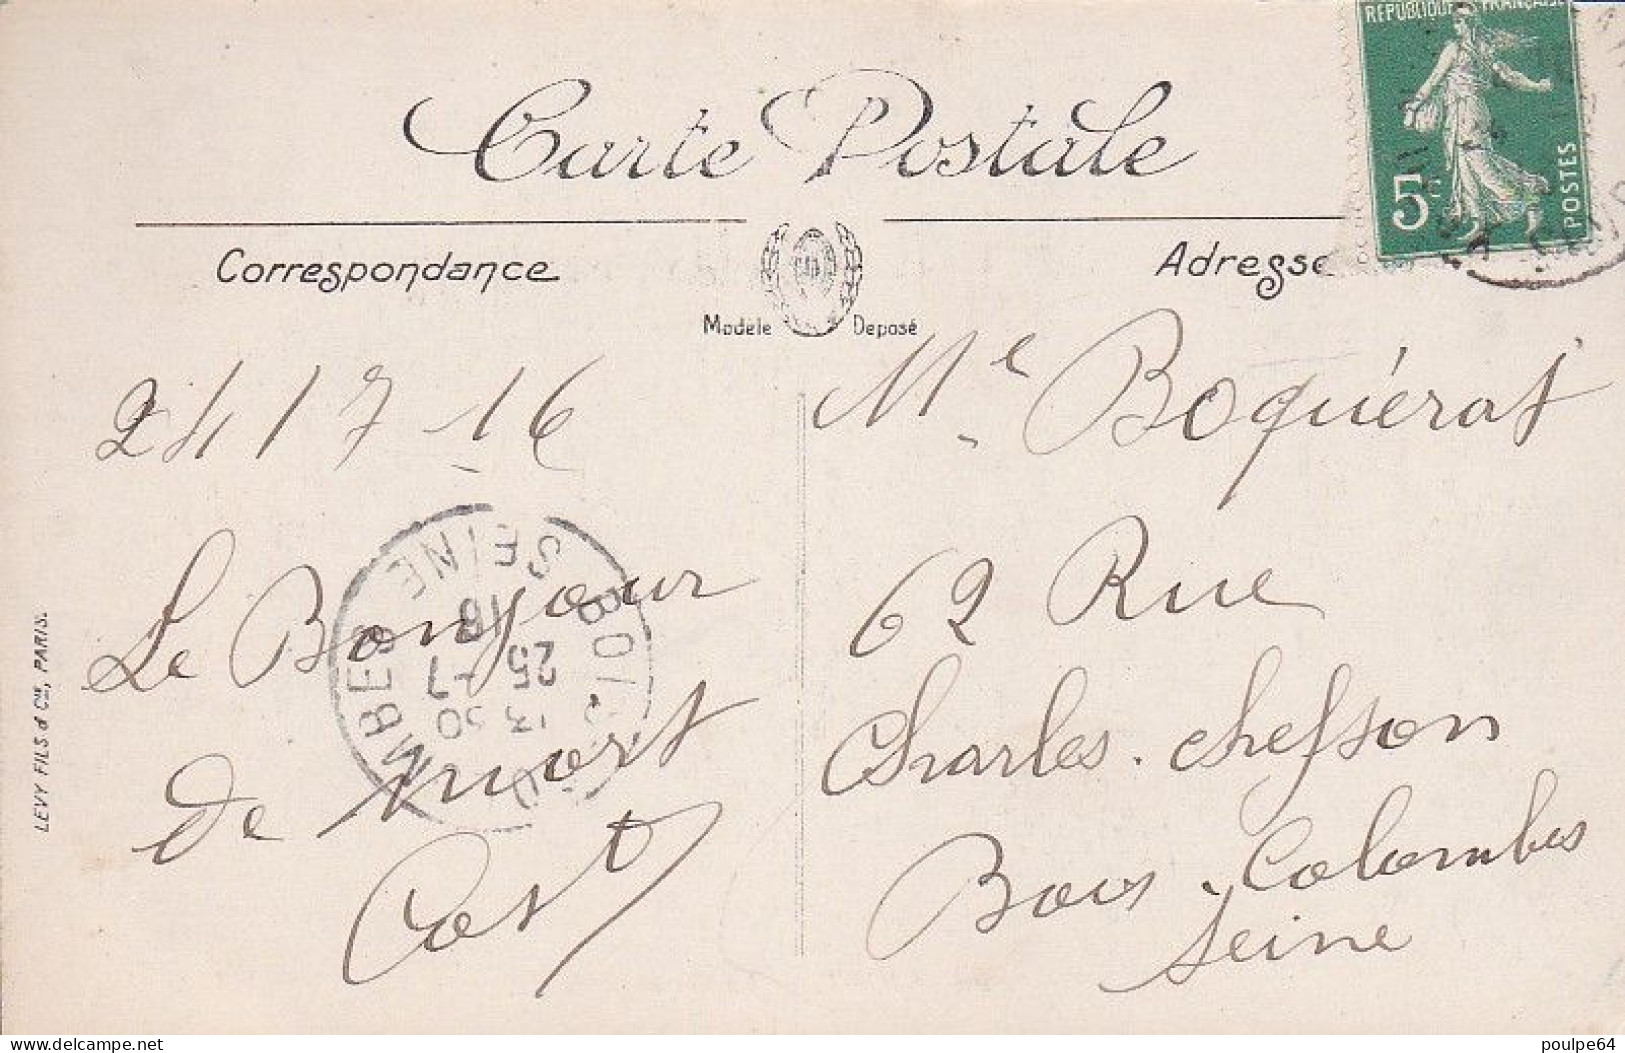 Carte Postale
REPUBLIQUE FRANÇAISE
5c
POSTES
Correspondance
Adresse
Modèle Déposé
24/7-16
Le Bonjour
de niort
LEVY FILS & Cie, PARIS.
Mlle Boquérat
62 Rue
Charles. chefson
Bois. Colombes
Seine
BOIS COLOMBES
SEINE
13 50
25 -7
16
delcampe.net
poulpe64